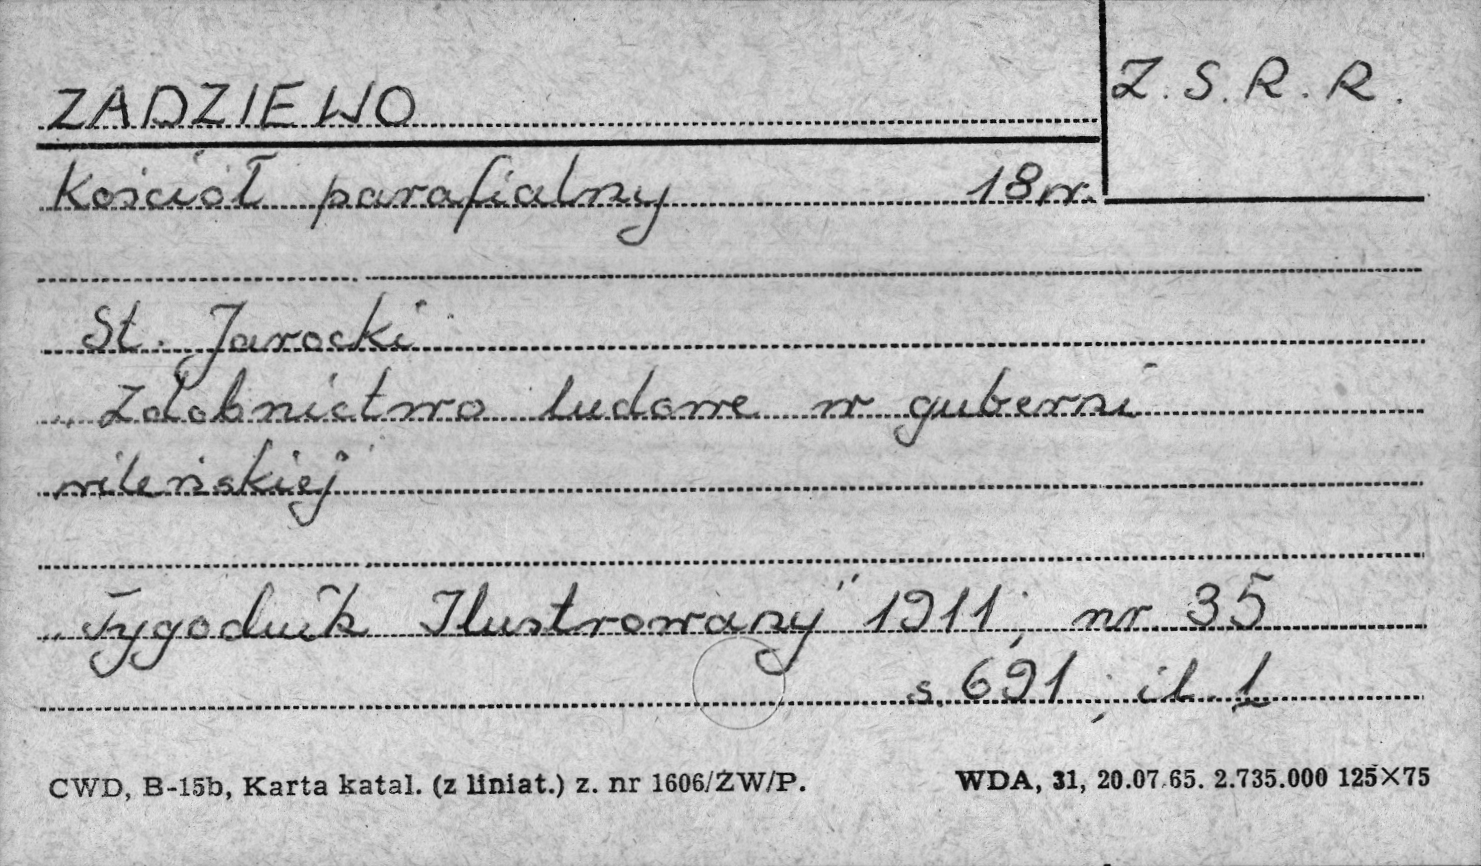 ZADZIEWO
Z.S.R.R.
Kościół parafialny 18w.
St. Jarocki
„Zdobnictwo ludowe w guberni
wileńskiej
„Tygodnik Ilustrowany" 1911; nr 35
s. 691; il. 1
CWD, B-15b, Karta katal. (z liniat.) z. nr 1606/ŻW/P. WDA, 31, 20.07.65. 2.735.000 125×75